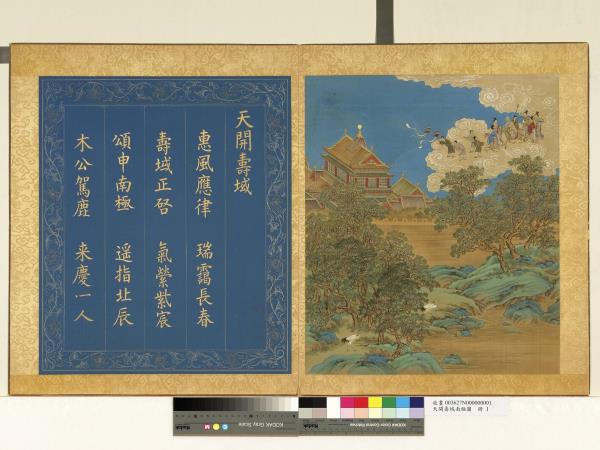 天開壽域
惠風應律 瑞靄長春
壽域正启 氣縈紫宸
頌申南極 遥指北辰
木公駕鹿 来慶一人
故畫 003627N000000001
天開壽域南極圖 冊 1
KODAK Gray Scale
C M
KODAK Color Control Patches